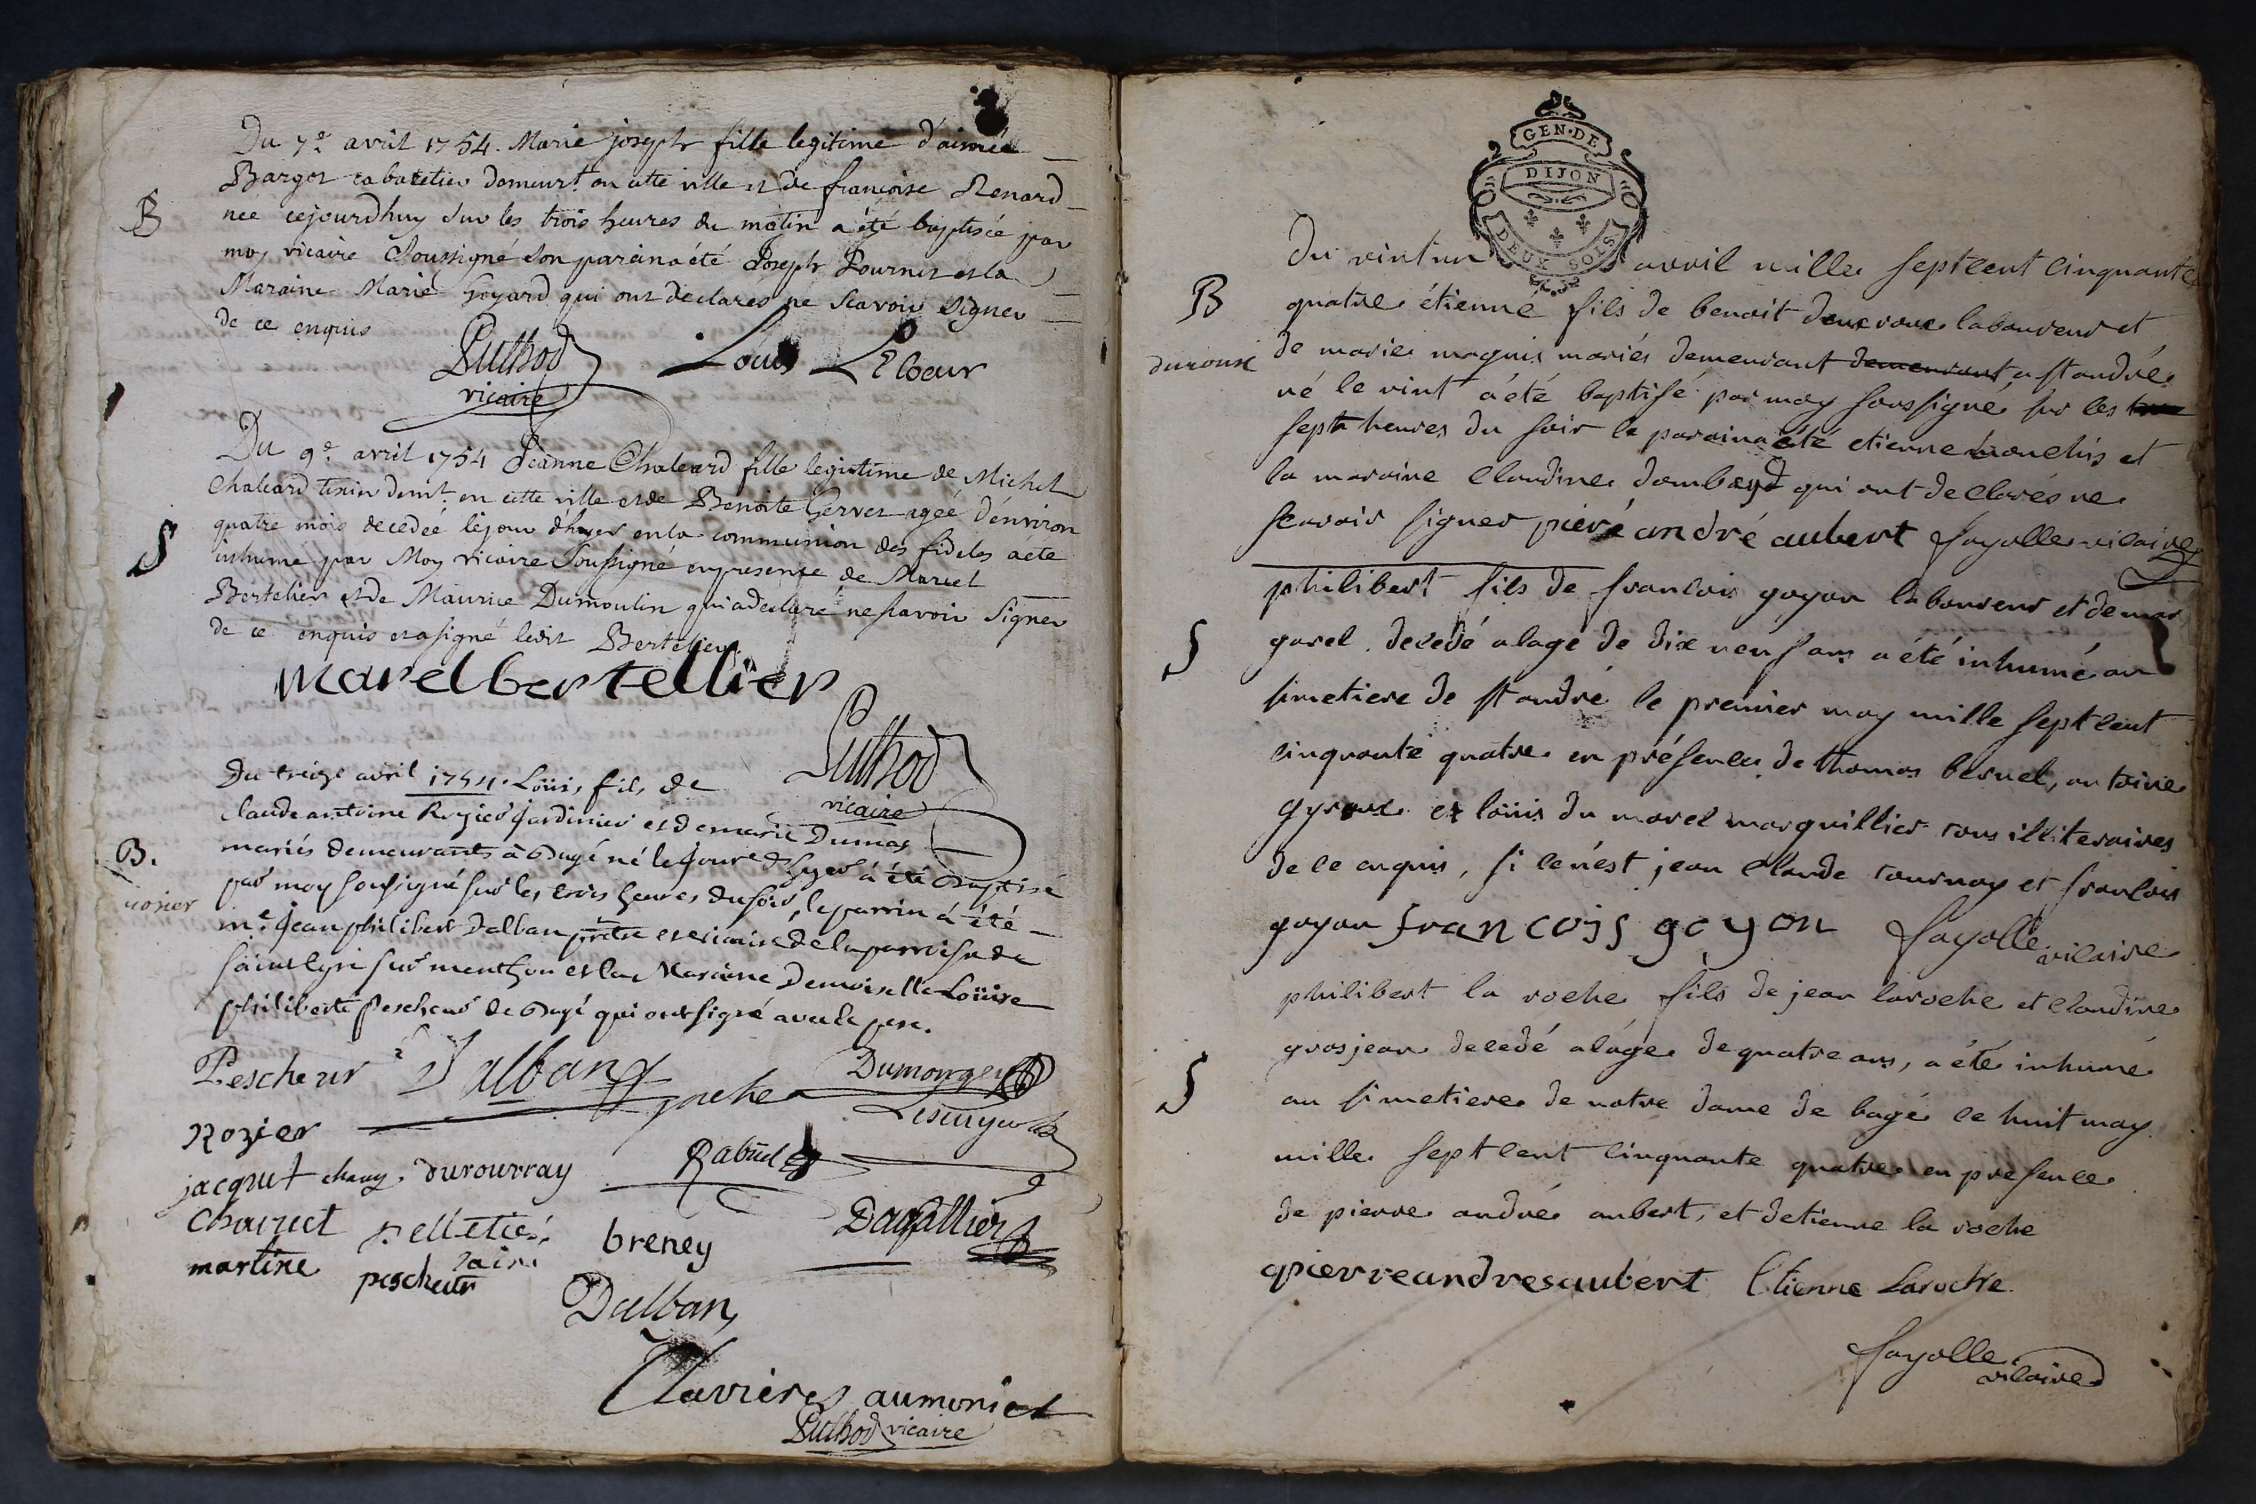 Du 7e avril 1754. Marie joseph fille legitime d'aimée
Bargot cabaretier demeurt. en cette ville et de françoise Renard
B
née cejourdhuy sur les trois heures du matin a été baptisée par
moy vicaire Soussigné son parain a été Joseph Fournier et la
Maraine Marie Goyard qui ont declarés ne scavoir signer
de ce enquis
Puthod Louis LEbœur
vicaire
Du 9e avril 1754 Jeanne Chaleard fille legitime de Michel
Chaleard demt. en cette ville et de Benoite Gervet agée d'environ
S
quatre mois decedée le jour d'hyer en la communion des fideles a été
inhume par Moy vicaire Soussigné en presence de Marcel
Bertelier et de Maurice Dumoulin qui a declaré ne scavoir signer
de ce enquis et a signé ledit Bertelier.
marel bertellier
Puthod
vicaire
Du treize avril 1754. Loüis, fils, de
claude antoine Rozier jardinier et de marie Dumas
B.
mariés demeurants à Bagé né le jour d'hyer à été Baptisé
rosier
par moy soussigné sur les trois heures du soir, le parrin à été
me. jean philibert Dalban prêtre et vicaire de la parroisse de
saint Cyr sur menthon et la Maraine Demoiselle Loüise
philiberte Pescheur de Bagé qui ont signé avec le pere.
Pescheur Dalban
Rozier
jacqut chany. durourray Rabuel
Chavrict pelletié breney Dagallier
martine pescheur
Dalban
Clavieres aumonier
Puthod vicaire
GEN. DE
DIJON
DEUX SOLS
Du vint un avril mille sept cent cinquante
B
quatre étienne fils de benoit laboureur et
duroux
de marie maquis mariés demeurant demeurant a st andré
né le vint a été baptisé par moy soussigné sur les
sept heures du soir le parain a été etienne et
la maraine Claudine qui ont declarés ne
scavoir signer pieré andré aubert fayolle vicaire
philibert fils de francois goyon laboureur et de mar
S
gorel. decedé a lage de dix neuf ans a été inhumé au
simetiere de st andré le premier may mille sept cent
cinquante quatre en présence de thomas beruel, antoine
et loüis du morel marguillier tous illiteraires
de ce enquis, si ce n'est jean Claude tournay et francois
goyon francois goyon fayolle vicaire
philibert la roche fils de jean laroche et Claudine
grosjean decedé a láge de quatre ans, a été inhumé
S
au simetiere de notre dame de bagé le huit may
mille sept cent cinquante quatre en presence
de pierre andré aubert, et detienne la roche
pierreandresaubert Etienne Laroche
fayolle
vicaire